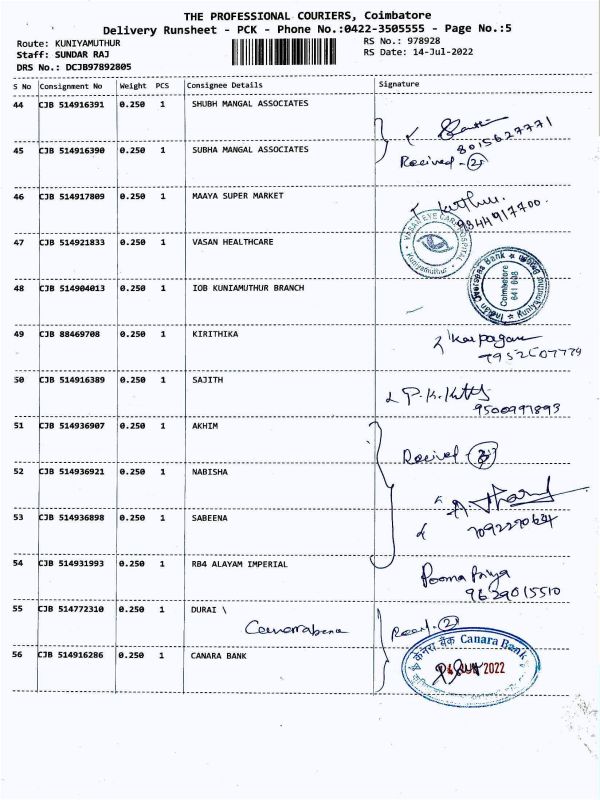 THE PROFESSIONAL COURIERS, Coimbatore
Delivery Runsheet - PCK - Phone No.:0422-3505555 - Page No.:5
Route: KUNIYAMUTHUR
RS No.: 978928
Staff: SUNDAR RAJ
RS Date: 14-Jul-2022
DRS No.: DCJB97892805
S No Consignment No Weight PCS Consignee Details Signature
44 CJB 514916391 0.250 1 SHUBH MANGAL ASSOCIATES
8015627771
45 CJB 514916390 0.250 1 SUBHA MANGAL ASSOCIATES
Received - 2
46 CJB 514917809 0.250 1 MAAYA SUPER MARKET
9344917700.
47 CJB 514921833 0.250 1 VASAN HEALTHCARE
VASAN EYE CARE HOSPITAL
Kuniyamuthur
48 CJB 514904013 0.250 1 IOB KUNIAMUTHUR BRANCH
Indian Overseas Bank
Coimbatore
641 008
49 CJB 88469708 0.250 1 KIRITHIKA
Karpagam
50 CJB 514916389 0.250 1 SAJITH
9500997893
51 CJB 514936907 0.250 1 AKHIM
Received - 3
52 CJB 514936921 0.250 1 NABISHA
53 CJB 514936898 0.250 1 SABEENA
54 CJB 514931993 0.250 1 RB4 ALAYAM IMPERIAL
Poorna Priya
9629015510
55 CJB 514772310 0.250 1 DURAI \
Canarabank
56 CJB 514916286 0.250 1 CANARA BANK
केनरा बैंक Canara Bank
2022